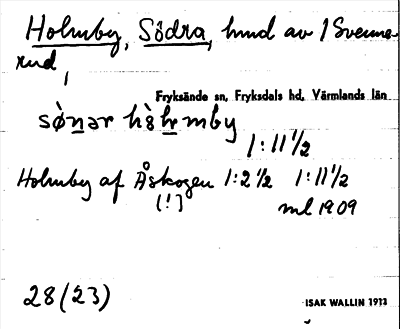 Holmby, Södra, hmd av 1 Svenne
rud,
Fryksände sn, Fryksdals hd, Värmlands län
sø̀nər hòlmby
1:11 ½
Holmby af Åskogen 1:2 ½ 1:11 ½
[!] ml 1909
28 (23)
ISAK WALLIN 1913